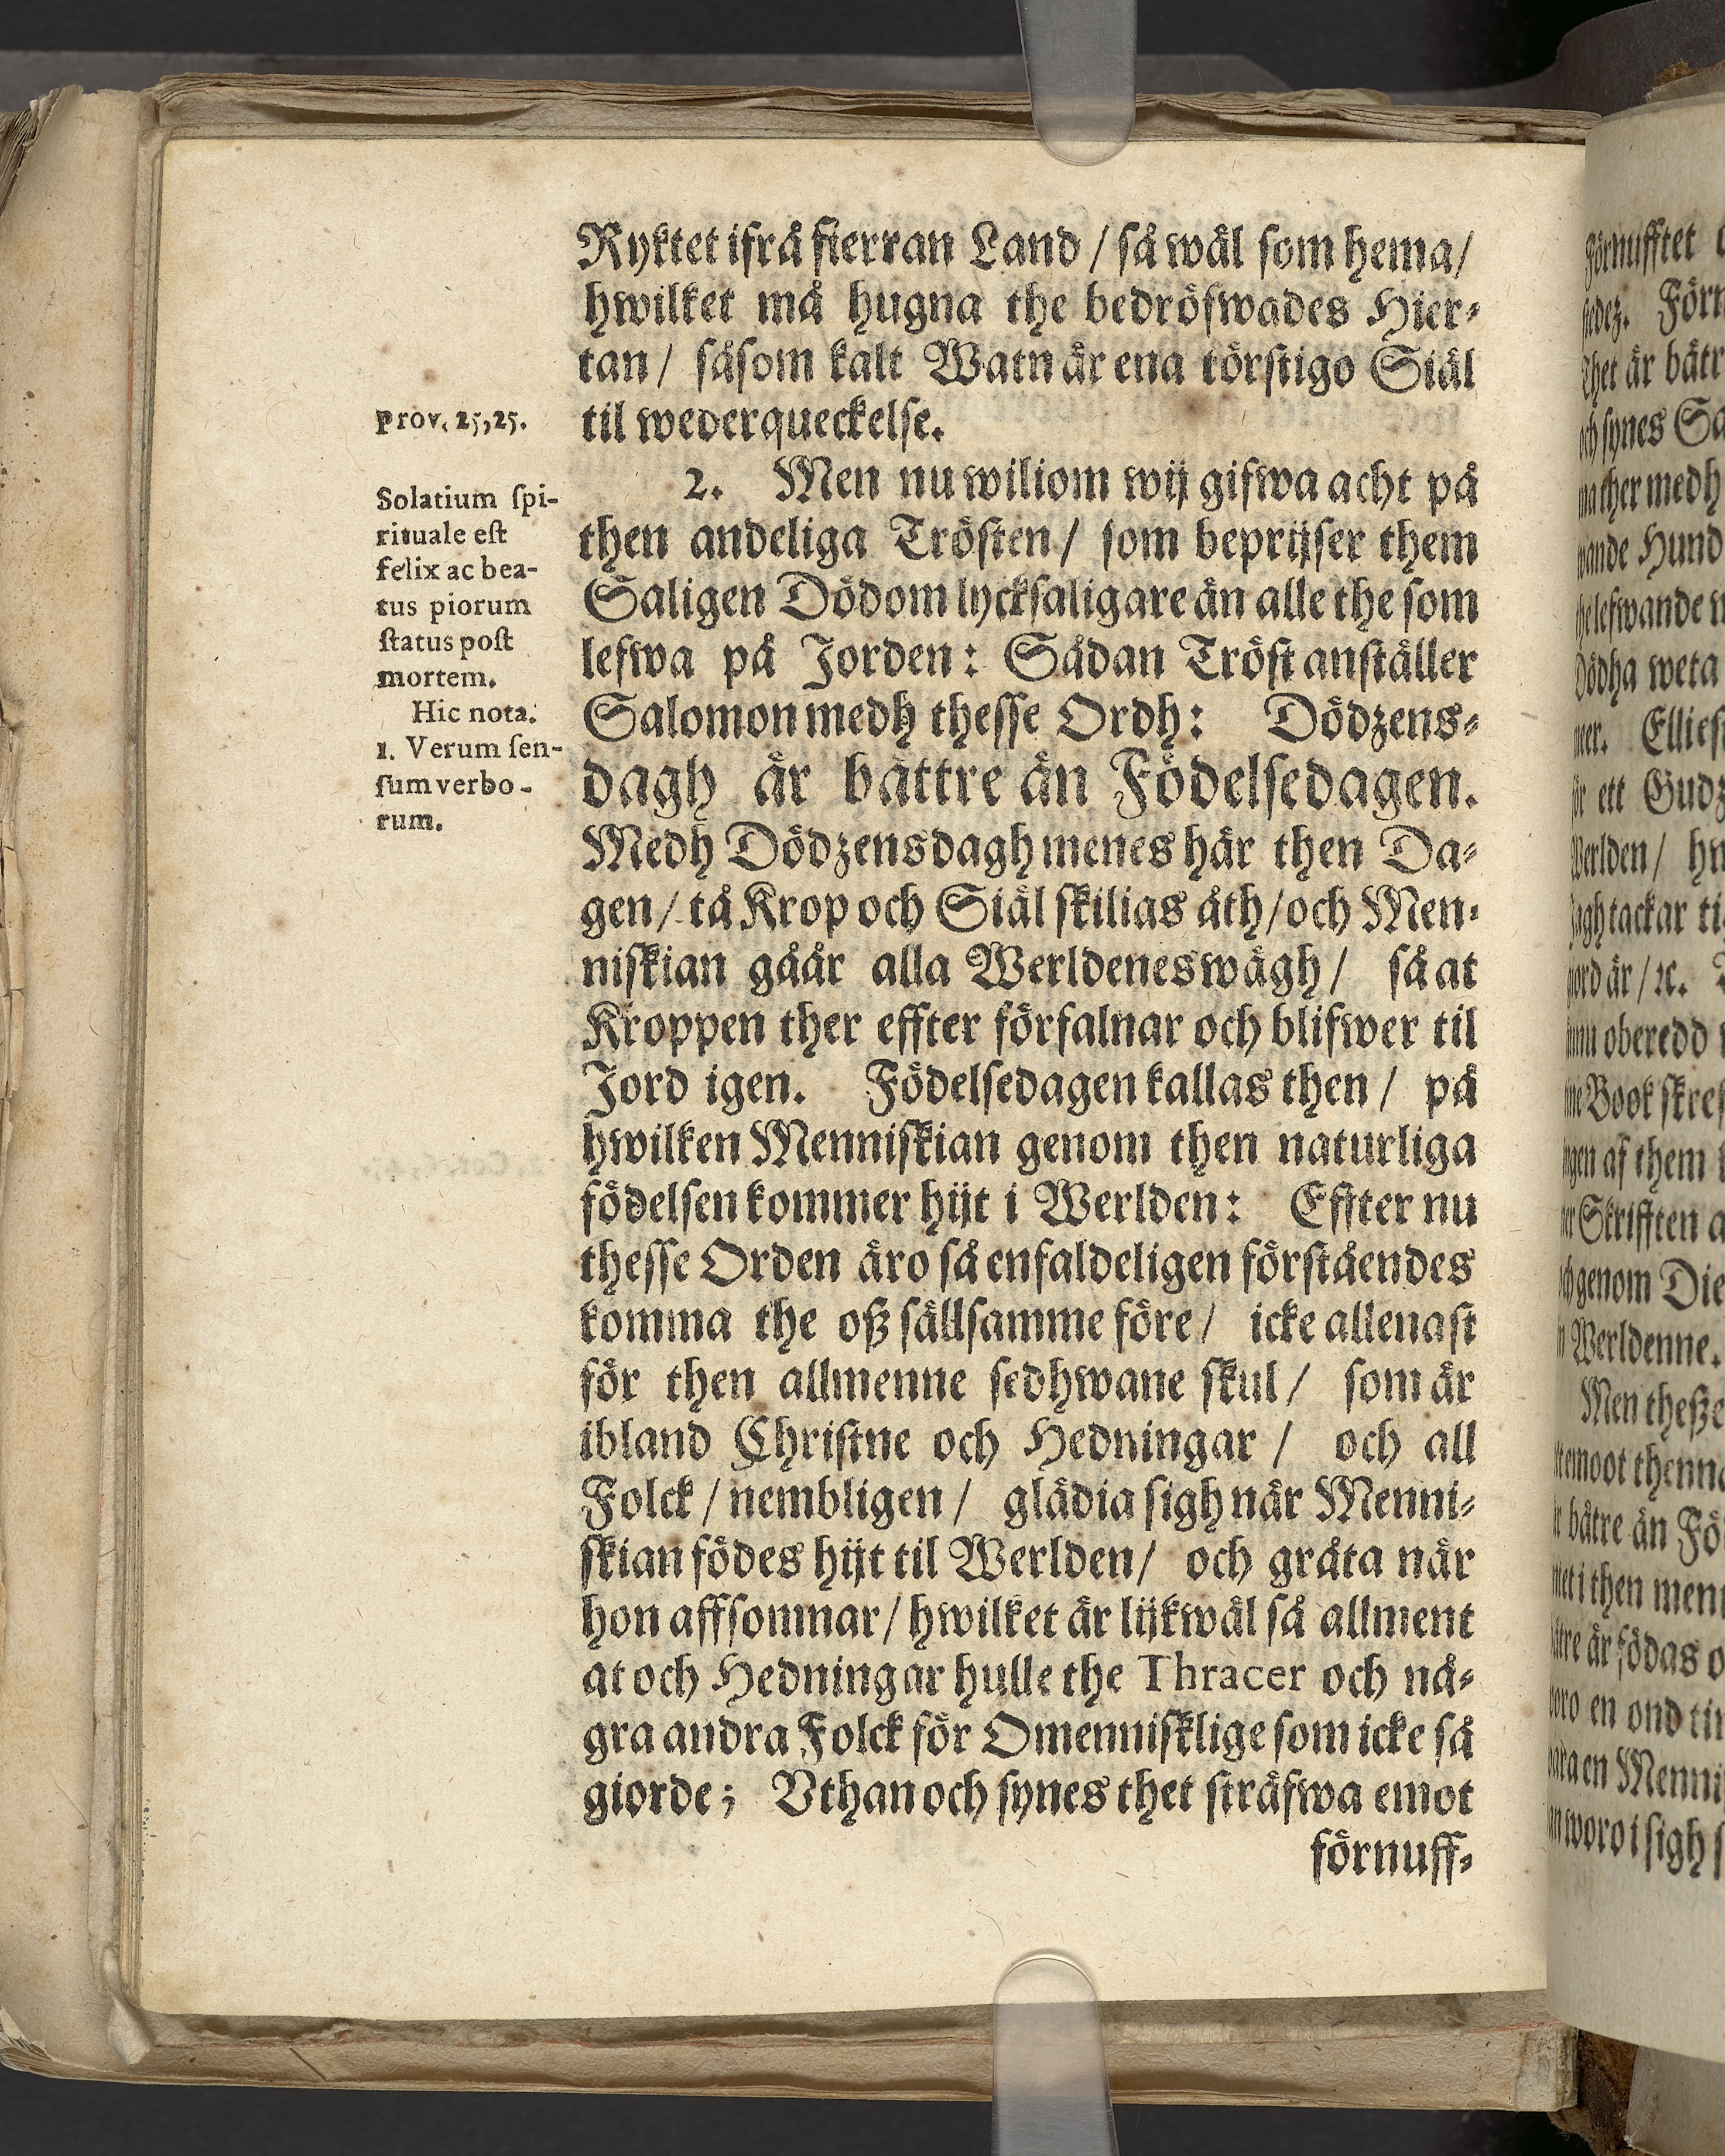 Ryktet ifrå fierran Land / så wäl som hema /
hwilket må hugna the bedröfwades Hier-
tan / såsom kalt Watn är ena törstigo Siäl
til wederqueckelse.
2. Men nu wiliom wij gifwa acht på
then andeliga Trösten / som beprijser them
Saligen Dödom lycksaligare än alle the som
lefwa på Jorden: Sådan Tröst anställer
Salomon medh thesse Ordh: Dödzens-
dagh är bättre än Födelsedagen.
Medh Dödzensdagh menes här then Da-
gen / tå Krop och Siäl skilias åth / och Men-
niskian gåår alla Werldenes wägh / så at
Kroppen ther effter förfalnar och blifwer til
Jord igen. Födelsedagen kallas then / på
hwilken Menniskian genom then naturliga
födelsen kommer hijt i Werlden: Effter nu
thesse Orden äro så enfaldeligen förståendes
komma the oß sällsamme före / icke allenast
för then allmenne sedhwane skul / som är
ibland Christne och Hedningar / och all
Folck / nembligen / glädia sigh när Menni-
skian födes hijt til Werlden / och gråta när
hon affsomnar / hwilket är lijkwäl så allment
at och Hedningar hulle the Thracer och nå-
gra andra Folck för Omennisklige som icke så
giorde; Vthan och synes thet sträfwa emot
förnuff-
prov. 25,25.
Solatium spi-
rituale est
felix ac bea-
tus piorum
status post
mortem.
Hic nota.
1. Verum sen-
sum verbo-
rum.
förnufftet
Förn
är bätr
synes Sa
medh
wande Hund
lefwande
Dödha weta
Ellies
ett Gudz
Werlden /
tackar
är / ꝛc.
oberedd
Book
af them
Skrifften
genom Die
Werldenne.
Men theße
emoot
bätre än Fö
i then
är födas
en ond
en Menni
woro i sigh